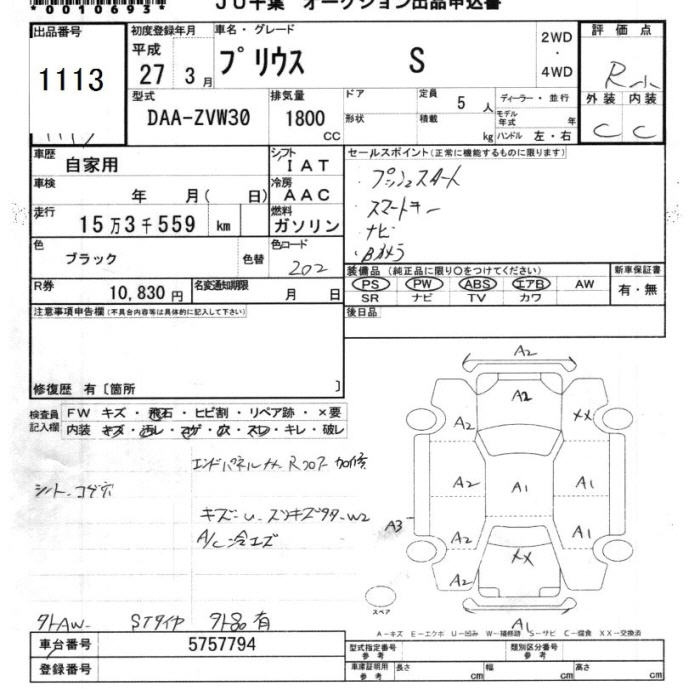 *0010693*
JU千葉 オークション出品申込書
出品番号
1113
初度登録年月
平成
27 3月
車名・グレード
プリウス S
2WD
・
4WD
評価点
R
外装 内装
C C
型式
DAA-ZVW30
排気量
1800
cc
ドア
形状
定員
5人
積載
kg
ディーラー・並行
モデル年式 年
ハンドル 左・右
車歴
自家用
シフト
IAT
車検
年 月( 日)
冷房
AAC
走行
15万3千559 km
燃料
ガソリン
色
ブラック
色替
色コード
202
R券
10,830円
名変通知期限
月 日
セールスポイント(正常に機能するものに限ります)
・プッシュスタート
・スマートキー
・ナビ
・Bカメラ
装備品(純正品に限り○をつけてください)
PS PW ABS エアB AW
SR ナビ TV カワ
新車保証書
有・無
後日品
注意事項申告欄(不具合内容等は具体的に記入して下さい)
修復歴 有〔箇所 〕
検査員
記入欄
FW キズ・飛石・ヒビ割・リペア跡・×要
内装 キズ・汚レ・コゲ・穴・スレ・キレ・破レ
エンドパネル Rフロアー 加修
シート コゲ穴
キズ-U
W2
A/C 冷エズ
外AW- STタイヤ 外品有
A2
A2
A2
XX
A2
A1
A1
A3
A2
A1
A2
XX
A1
スペア
A-キズ E-エクボ U-凹み W-補修跡 S-サビ C-腐食 XX-交換済
車台番号
5757794
登録番号
型式指定番号
参考
類別区分番号
参考
車庫証明用
参考
長さ cm 幅 cm 高さ cm